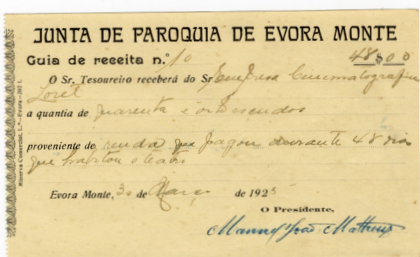 JUNTA DE PAROQUIA DE EVORA MONTE
Guia de receita n.º 10 48$00
O Sr. Tesoureiro receberá do Sr Cinematografica
Loret
a quantia de quarenta e oito escudos
proveniente de renda que pagou durante 48 dias
que o teatro
Evora Monte, 30 de Março de 1925
O Presidente,
Manuel João Matheus